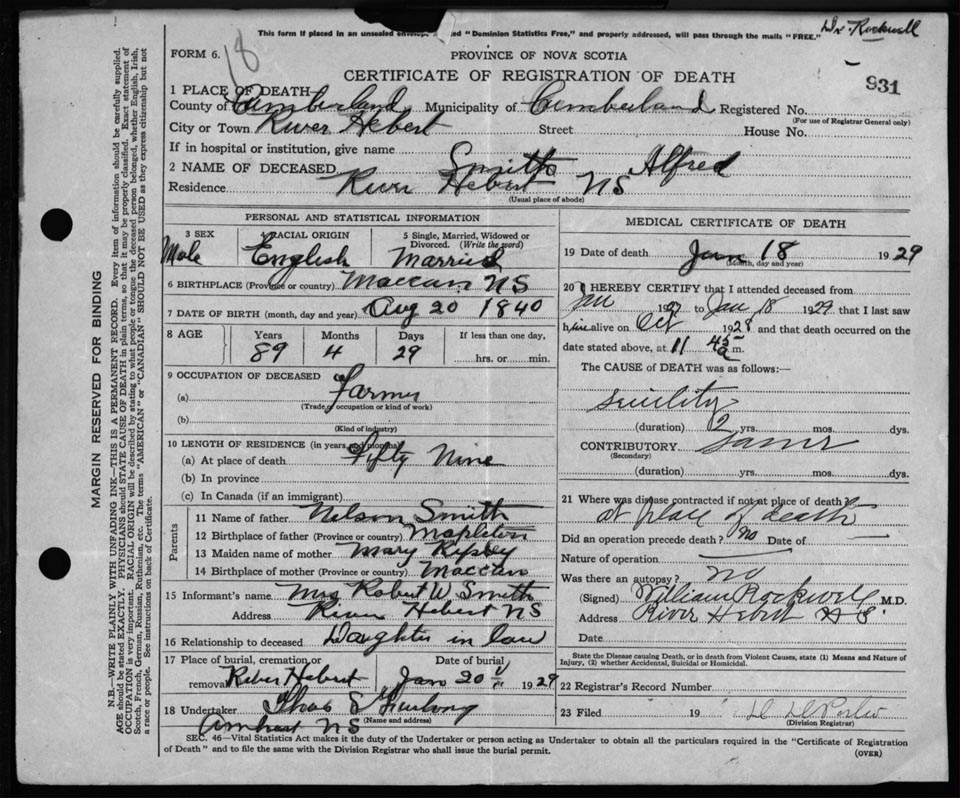 Dr. Rockwell
This form if placed in an unsealed "Dominion Statistics Free," and properly addressed, will pass through the mails "FREE."
18
FORM 6.
PROVINCE OF NOVA SCOTIA
CERTIFICATE OF REGISTRATION OF DEATH
931
1 PLACE OF DEATH
County of Cumberland Municipality of Cumberland Registered No.
(For use of Registrar General only)
City or Town River Hebert Street House No.
If in hospital or institution, give name
2 NAME OF DECEASED Smith Alfred
Residence River Hebert NS
(Usual place of abode)
PERSONAL AND STATISTICAL INFORMATION
3 SEX 4 RACIAL ORIGIN 5 Single, Married, Widowed or Divorced. (Write the word)
Male English Married
6 BIRTHPLACE (Province or country) Maccan NS
7 DATE OF BIRTH (month, day and year) Aug 20 1840
8 AGE Years Months Days If less than one day,
89 4 29 hrs. or min.
9 OCCUPATION OF DECEASED
(a) Farmer
(Trade, occupation or kind of work)
(b)
(Kind of industry)
10 LENGTH OF RESIDENCE (in years and months)
(a) At place of death Fifty Nine
(b) In province
(c) In Canada (if an immigrant)
Parents
11 Name of father Nelson Smith
12 Birthplace of father (Province or country) Mapleton
13 Maiden name of mother Mary Ripley
14 Birthplace of mother (Province or country) Maccan
15 Informant's name Mrs Robert W. Smith
Address River Hebert NS
16 Relationship to deceased Daughter in law
17 Place of burial, cremation or Date of burial
removal River Hebert Jan 20 1929
18 Undertaker Thos S Furlong
(Name and address)
Amherst NS
MEDICAL CERTIFICATE OF DEATH
19 Date of death Jan 18 1929
(Month, day and year)
20 I HEREBY CERTIFY that I attended deceased from
Jan 1927 to Jan 18 1929 that I last saw
him alive on Oct 1928 and that death occurred on
date stated above, at 11 45 a m.
The CAUSE of DEATH was as follows:—
senility
(duration) 2 yrs. mos. dys.
CONTRIBUTORY Same
(Secondary)
(duration) yrs. mos. dys.
21 Where was disease contracted if not at place of death?
at place of death
Did an operation precede death? no Date of
Nature of operation
Was there an autopsy? no
(Signed) William Rockwell M.D.
Address River Hebert N S
Date
State the Disease causing Death, or in death from Violent Causes, state (1) Means and Nature of
Injury, (2) whether Accidental, Suicidal or Homicidal.
22 Registrar's Record Number
23 Filed 19
(Division Registrar)
SEC. 46—Vital Statistics Act makes it the duty of the Undertaker or person acting as Undertaker to obtain all the particulars required in the "Certificate of Registration
of Death" and to file the same with the Division Registrar who shall issue the burial permit.
(OVER)
MARGIN RESERVED FOR BINDING
N.B.—WRITE PLAINLY WITH UNFADING INK—THIS IS A PERMANENT RECORD. Every item of information should be carefully supplied.
AGE should be stated EXACTLY. PHYSICIANS should STATE CAUSE OF DEATH in plain terms, so that it may be properly classified. Exact statement of
OCCUPATION is very important. RACIAL ORIGIN will be described by stating to what people or tongue the deceased person belonged, whether English, Irish,
Scotch, French, German, Russian, Ruthenian, etc. The terms "AMERICAN" or "CANADIAN" SHOULD NOT BE USED as they express citizenship but not
a race or people. See instructions on back of Certificate.